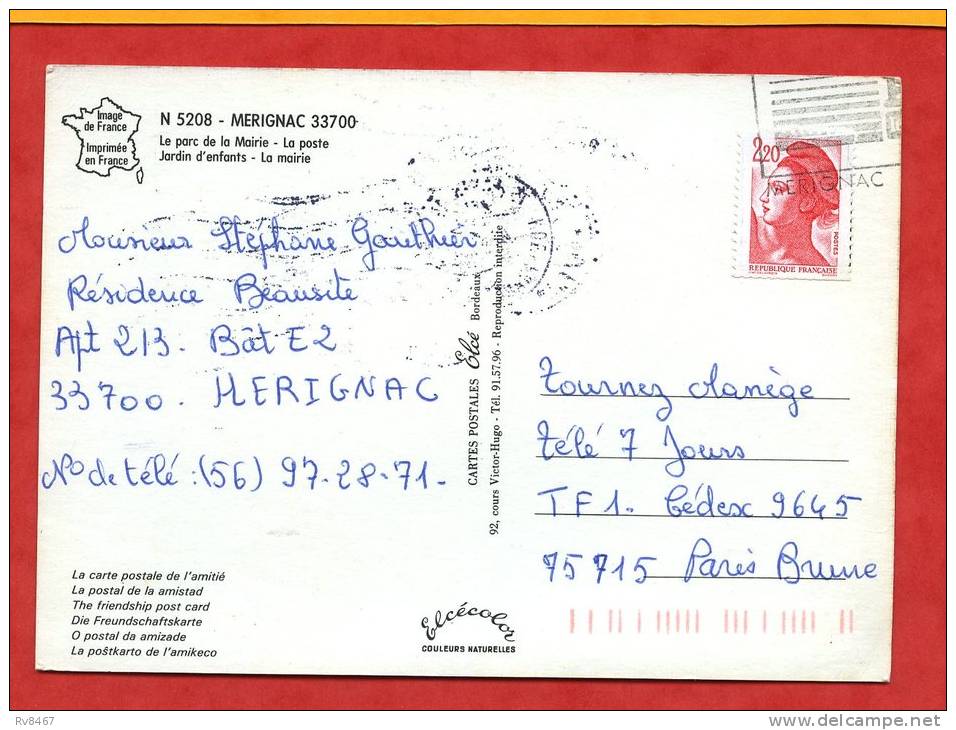 Image
de France
Imprimée
en France
N 5208 - MERIGNAC 33700
Le parc de la Mairie - La poste
Jardin d'enfants - La mairie
2,20
POSTES
REPUBLIQUE FRANÇAISE
MERIGNAC
Monsieur Stéphane Gauthier
Résidence Beausite
Apt 213. Bât E2
33700. MERIGNAC
No de télé : (56) 97-28-71-
CARTES POSTALES Elcé Bordeaux
92, cours Victor-Hugo - Tél. 91.57.96 - Reproduction interdite
Tournez Manège
Télé 7 Jours
TF1. Cédex 9645
75715 Paris Brune
La carte postale de l'amitié
La postal de la amistad
The friendship post card
Die Freundschaftskarte
O postal da amizade
La poŝtkarto de l'amikeco
Elcécolor
COULEURS NATURELLES
Rv8467
delcampe.net